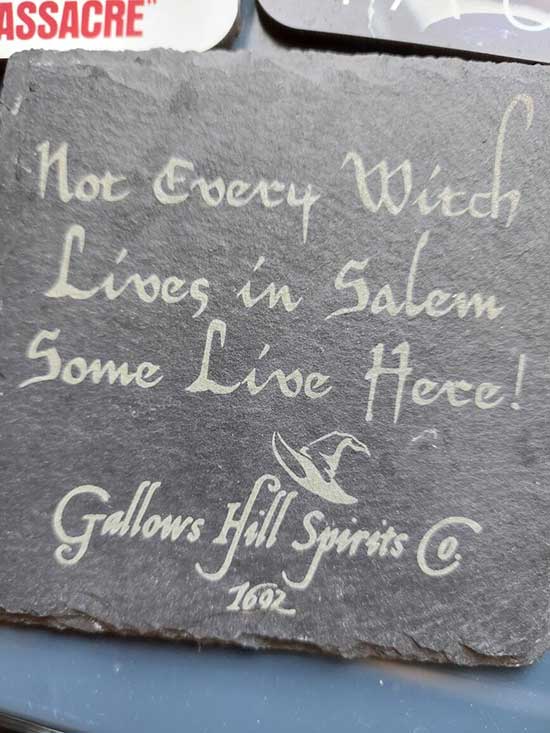 ASSACRE"
Not Every Witch
Lives in Salem
Some Live Here!
Gallows Hill Spirits Co.
1692